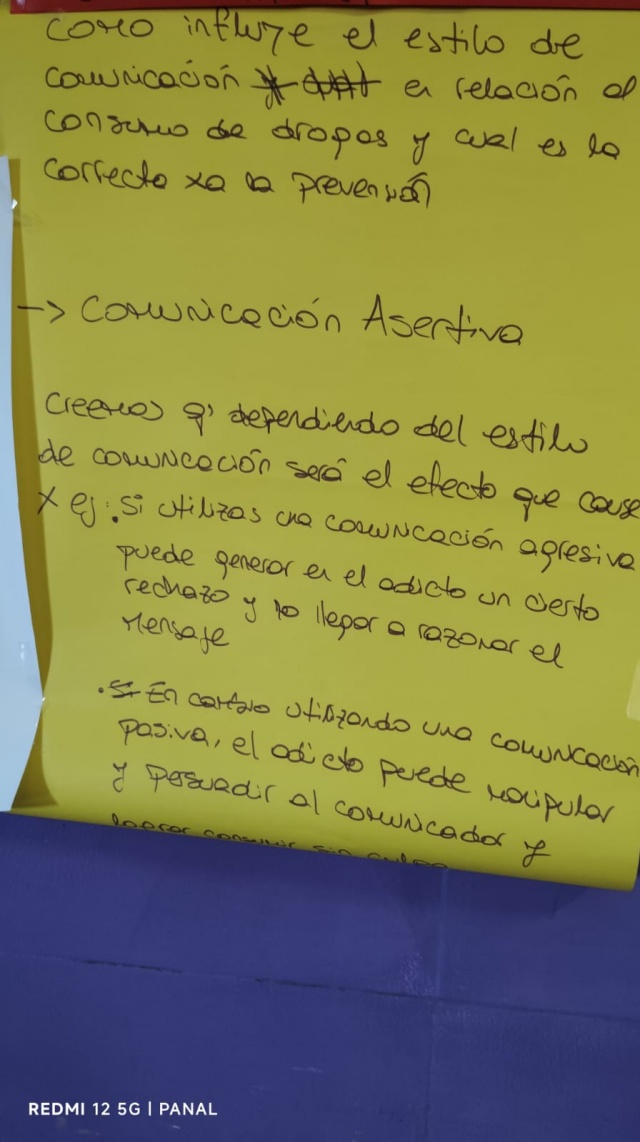 como influye el estilo de
comunicación en relación al
consumo de drogas y cual es la
correcta xa la prevención
-> Comunicación Asertiva
creemos q' dependiendo del estilo
de comunicación será el efecto que cause
x ej: . Si utilizas una comunicación agresiva
puede generar en el adicto un cierto
rechazo y no llegar a razonar el
mensaje
. En cambio utilizando una comunicación
pasiva, el adicto puede manipular
y persuadir al comunicador y
lograr consumir sin culpa
REDMI 12 5G | PANAL